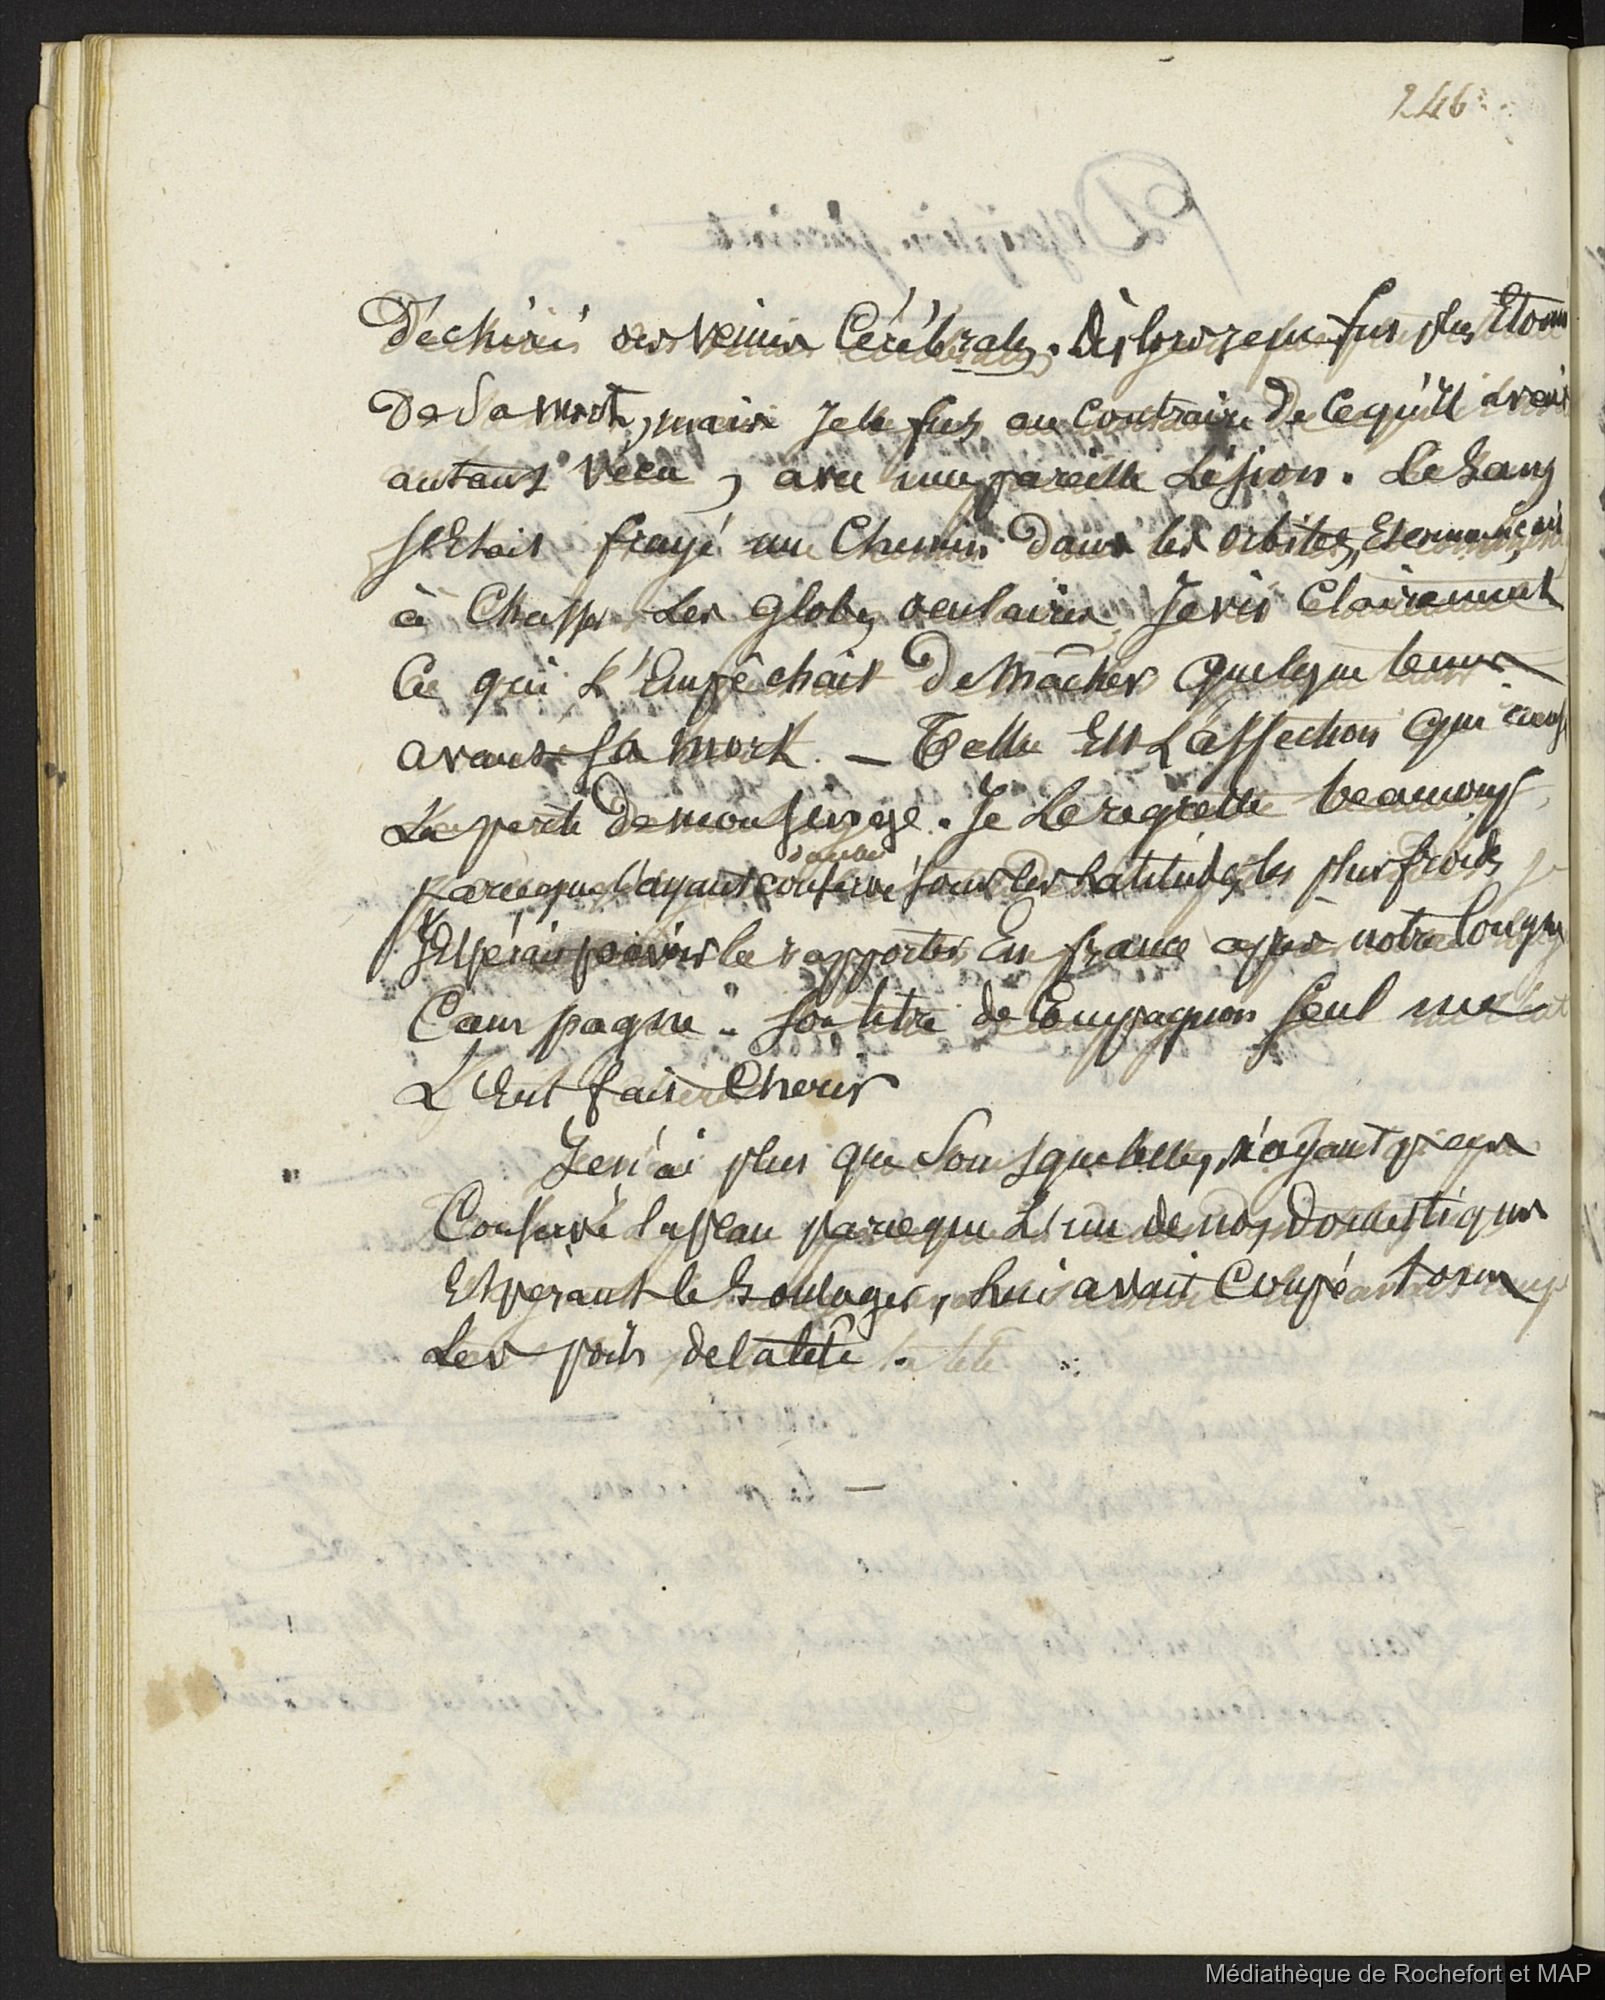 246
Déchirés des veines Cérébrales. Dès lors je ne fus plus Etonn
De Sa mort, mais Je le fus au Contraire De Cequ'il avait
autant vécu, avec une pareille Lésion. Le Sang
S'Etait frayé un Chemin Dans les orbites, Et commençait
à Chasser Les Globes oculaires. Je vis Clairement
Ce qui L'Empêchait De Mâcher Quelque tems
avant Sa Mort. — Telle Est L'affection Qui caus
La perte De mon Singe. Je Le regrette beaucoup
parceque l'ayant conservé sous les Latitudes les plus froides
J'Espérais le rapporter En france après notre longue
Campagne. Son titre de Compagnon Seul me
L'Eut fait Cherir
Je n'ai plus que Son Squelette, n'ayant pas
Conservé la peau parceque L'un de nos Domestiques
Espérant le Soulager, Lui avait Coupé tous
Les poils de la tête.
—
Médiathèque de Rochefort et MAP